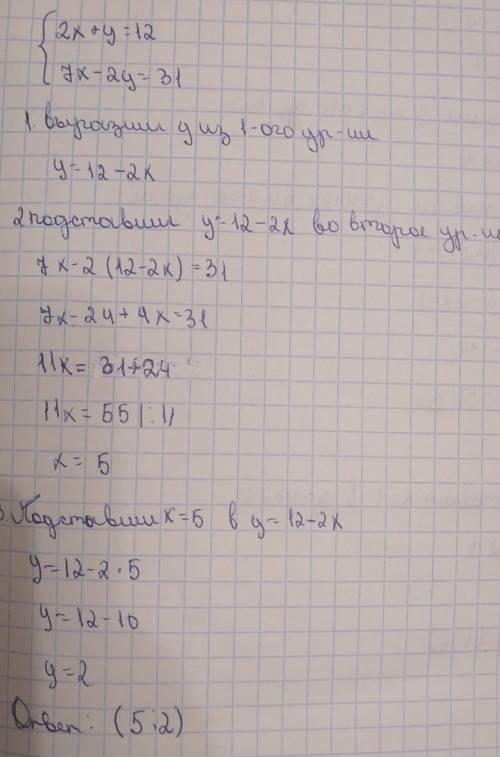 2x+y=12
7x-2y=31
1. выразим y из 1-ого ур-ия
y=12-2x
2 подставим y=12-2x во второе ур-ия
7x-2(12-2x)=31
7x-24+4x=31
11x=31+24
11x=55 |:11
x=5
3. Подставим x=5 в y=12-2x
y=12-2·5
y=12-10
y=2
Ответ: (5;2)